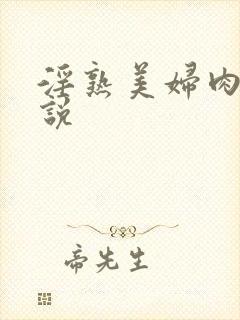 淫熟美婦肉
說
帝先生